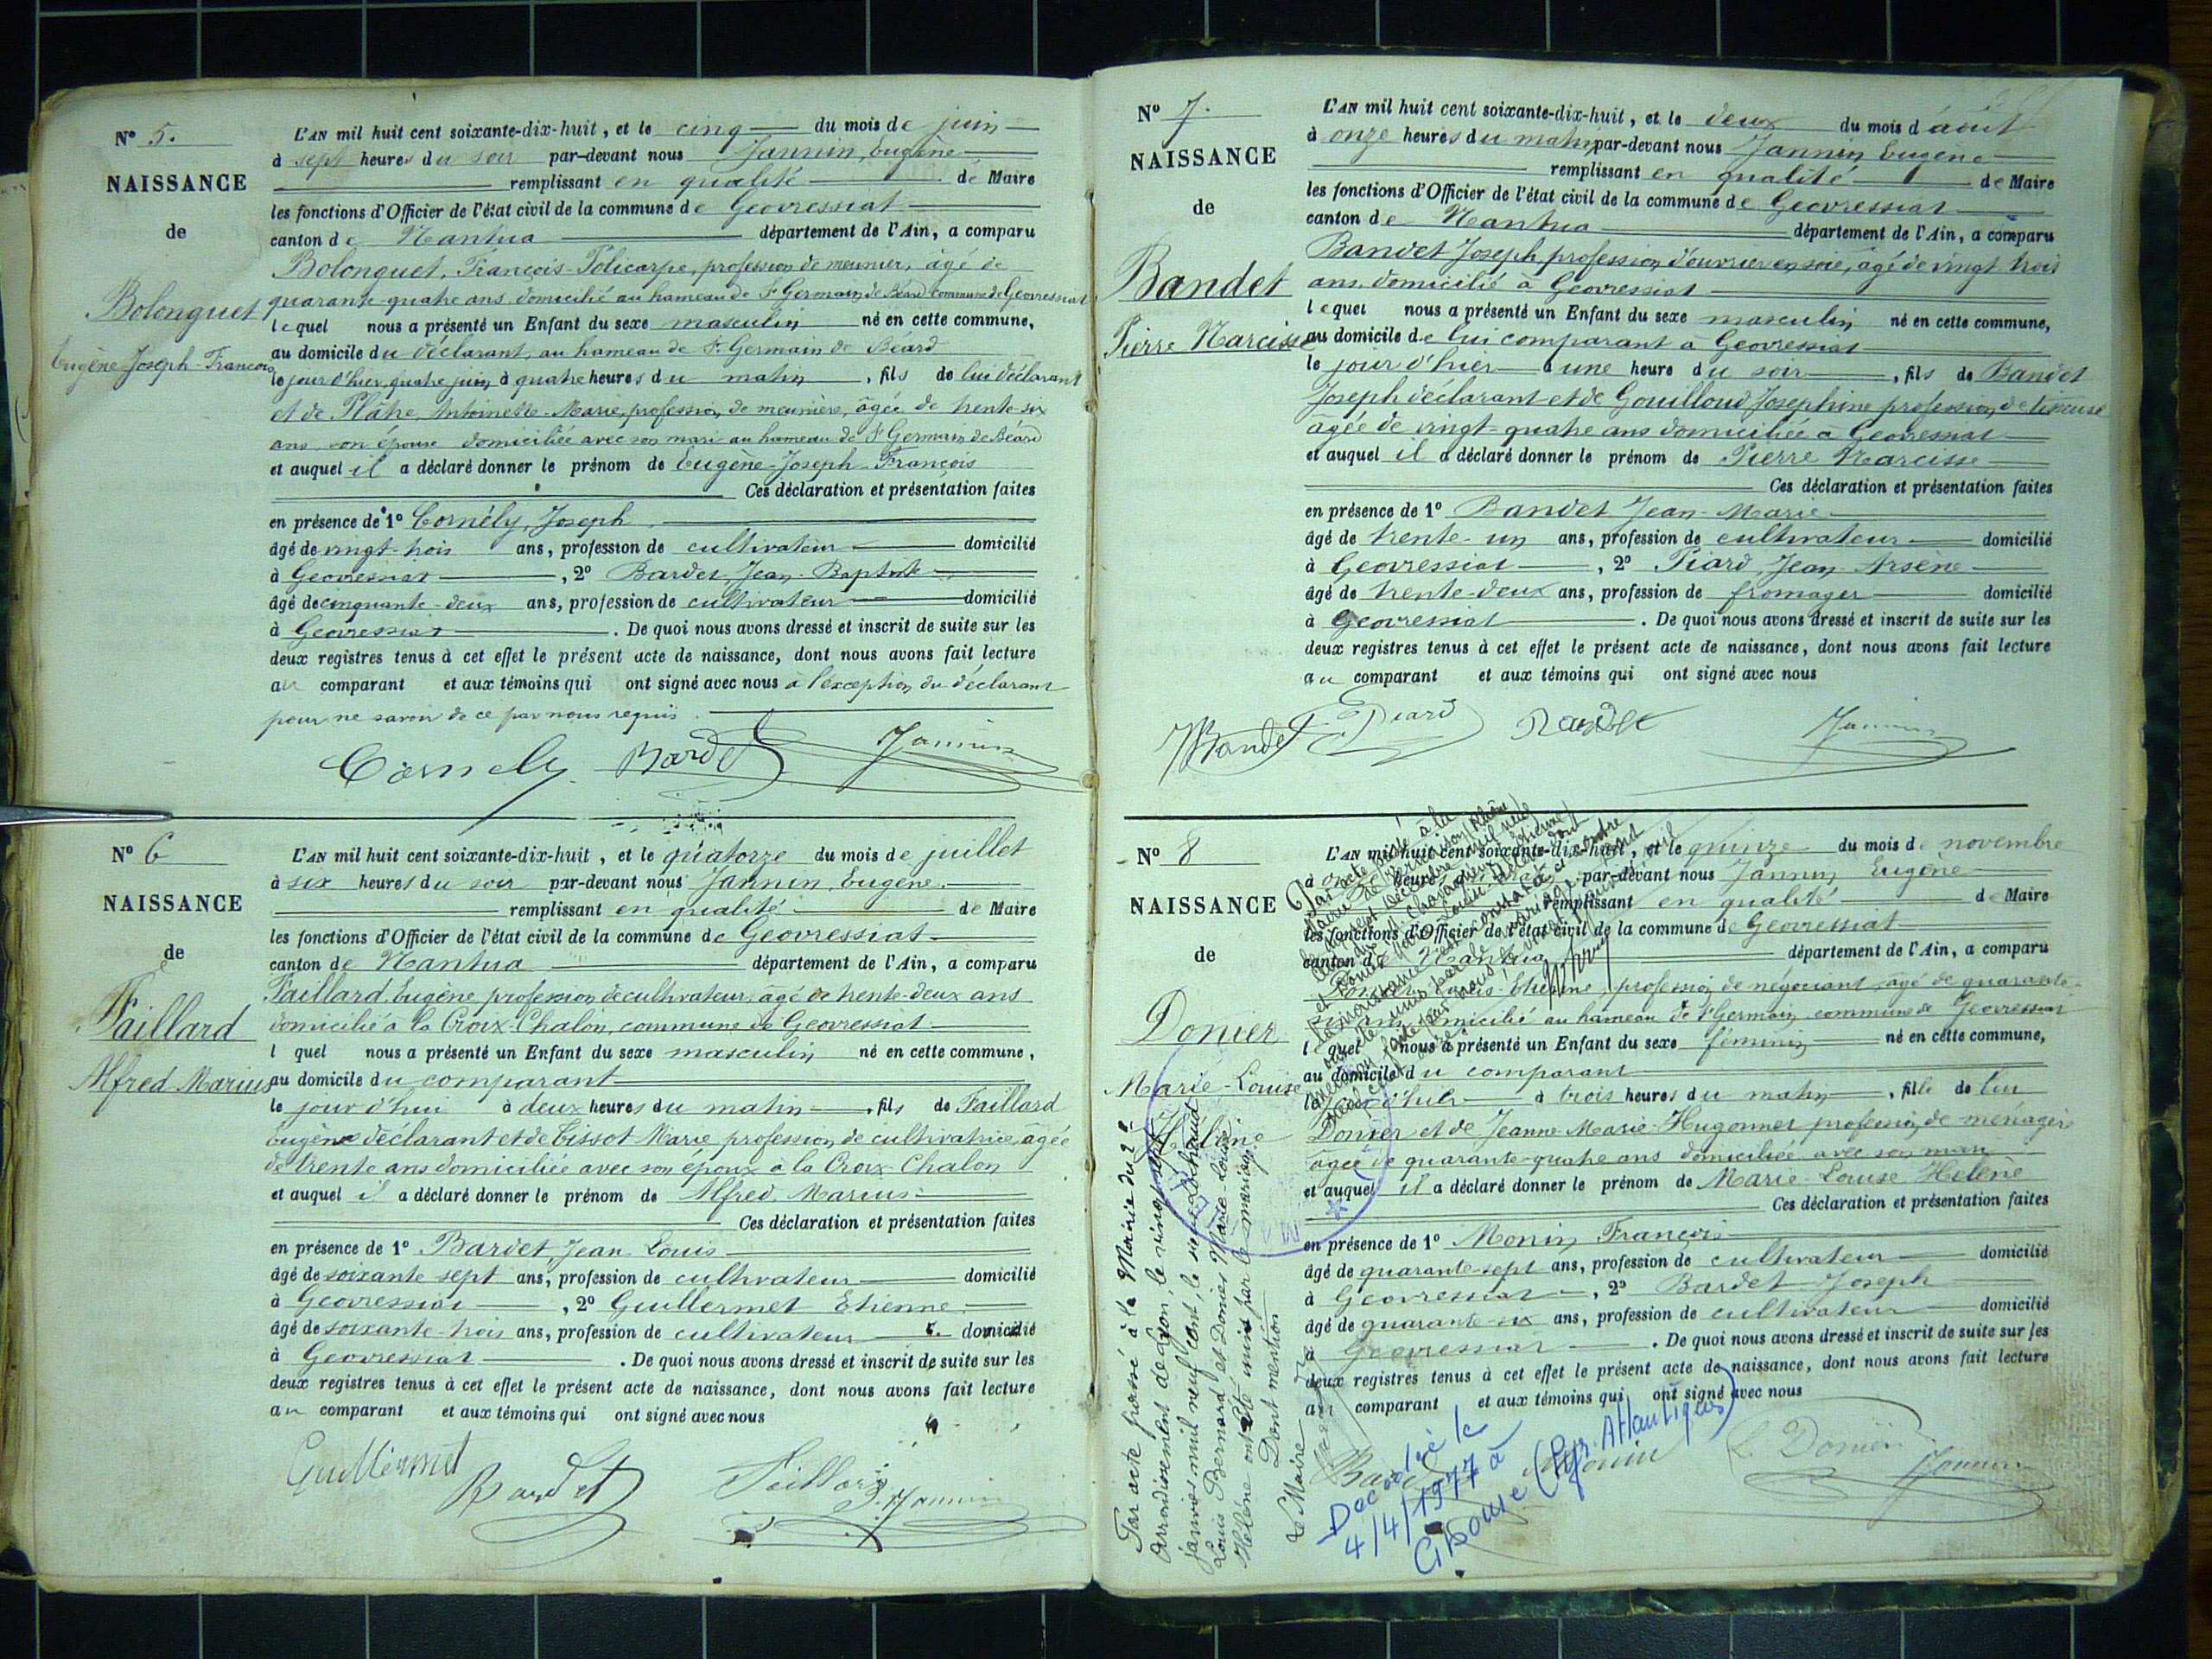 N° 5.
NAISSANCE
de
Bolonguet
Eugène Joseph-François
L'AN mil huit cent soixante-dix-huit, et le cinq du mois de juin
à sept heures du soir par-devant nous Jannin, Eugène
remplissant en qualité de Maire
les fonctions d'Officier de l'état civil de la commune de Geovressiat
canton de Nantua département de l'Ain, a comparu
Bolonguet, François-Policarpe, profession de meunier, âgé de
quarante-quatre ans domicilié au hameau de St Germain de Béard commune de Geovressiat
lequel nous a présenté un Enfant du sexe masculin né en cette commune,
au domicile du déclarant, au hameau de St Germain de Béard
le jour d'hier, quatre juin, à quatre heures du matin, fils de lui déclarant
et de Plâtre, Antoinette-Marie, profession de meunière, âgée de trente-six
ans son épouse domiciliée avec son mari au hameau de St Germain de Béard
et auquel il a déclaré donner le prénom de Eugène-Joseph-François
Ces déclaration et présentation faites
en présence de 1° Cornély, Joseph
âgé de vingt-trois ans, profession de cultivateur domicilié
à Geovressiat, 2° Bardet, Jean-Baptiste
âgé de cinquante-deux ans, profession de cultivateur domicilié
à Geovressiat. De quoi nous avons dressé et inscrit de suite sur les
deux registres tenus à cet effet le présent acte de naissance, dont nous avons fait lecture
au comparant et aux témoins qui ont signé avec nous à l'exception du déclarant
pour ne savoir de ce par nous requis.
Cornely Bardet Jannin
N° 6
NAISSANCE
de
Faillard
Alfred Marius
L'AN mil huit cent soixante-dix-huit, et le quatorze du mois de juillet
à six heures du soir par-devant nous Jannin, Eugène.
remplissant en qualité de Maire
les fonctions d'Officier de l'état civil de la commune de Geovressiat
canton de Nantua département de l'Ain, a comparu
Faillard, Eugène, profession de cultivateur, âgé de trente-deux ans
domicilié à la Croix-Chalon, commune de Geovressiat
l quel nous a présenté un Enfant du sexe masculin né en cette commune,
au domicile du comparant
le jour d'hui à deux heures du matin, fils de Faillard
Eugène déclarant et de Tissot Marie profession de cultivatrice, âgée
de trente ans domiciliée avec son époux à la Croix-Chalon
et auquel il a déclaré donner le prénom de Alfred Marius
Ces déclaration et présentation faites
en présence de 1° Bardet, Jean Louis
âgé de soixante sept ans, profession de cultivateur domicilié
à Geovressiat, 2° Guillermet Etienne
âgé de soixante-trois ans, profession de cultivateur domicilié
à Geovressiat. De quoi nous avons dressé et inscrit de suite sur les
deux registres tenus à cet effet le présent acte de naissance, dont nous avons fait lecture
au comparant et aux témoins qui ont signé avec nous
Guillermet Bardet Faillard Jannin
N° 7.
NAISSANCE
de
Bandet
Pierre Narcisse
L'AN mil huit cent soixante-dix-huit, et le deux du mois d'août
à onze heures du matin par-devant nous Jannin Eugène
remplissant en qualité de Maire
les fonctions d'Officier de l'état civil de la commune de Geovressiat
canton de Nantua département de l'Ain, a comparu
Bandet Joseph, profession d'ouvrier en soie, âgé de vingt trois
ans, domicilié à Geovressiat
lequel nous a présenté un Enfant du sexe masculin né en cette commune,
au domicile de lui comparant à Geovressiat
le jour d'hier à une heure du soir, fils de Bandet
Joseph déclarant et de Gouilloud Josephine profession de tisseuse
âgée de vingt-quatre ans domiciliée à Geovressiat
et auquel il a déclaré donner le prénom de Pierre Narcisse
Ces déclaration et présentation faites
en présence de 1° Bandet Jean-Marie
âgé de trente-un ans, profession de cultivateur domicilié
à Geovressiat, 2° Piard, Jean Arsène
âgé de trente-deux ans, profession de fromager domicilié
à Geovressiat. De quoi nous avons dressé et inscrit de suite sur les
deux registres tenus à cet effet le présent acte de naissance, dont nous avons fait lecture
au comparant et aux témoins qui ont signé avec nous
Bandet Piard Bandet Jannin
N° 8
NAISSANCE
de
Donier
Marie-Louise
Hélène
L'AN mil huit cent soixante-dix-huit, et le quinze du mois de novembre
à onze heures du par-devant nous Jannin, Eugène
remplissant en qualité de Maire
les fonctions d'Officier de l'état civil de la commune de Geovressiat
canton de Nantua département de l'Ain, a comparu
Donier, profession de négociant âgé de quarante
ans, domicilié au hameau de St Germain, commune de Geovressiat
lequel nous a présenté un Enfant du sexe féminin né en cette commune,
au domicile du comparant
le jour d'hui à trois heures du matin, fille de lui
Donier et de Jeanne-Marie Hugonnet profession de ménagère
âgée de quarante-quatre ans domiciliée avec son mari
et auquel il a déclaré donner le prénom de Marie-Louise Hélène
Ces déclaration et présentation faites
en présence de 1° Monin, François
âgé de quarante-sept ans, profession de cultivateur domicilié
à Geovressiat, 2° Bardet Joseph
âgé de quarante-six ans, profession de cultivateur domicilié
à Geovressiat. De quoi nous avons dressé et inscrit de suite sur les
deux registres tenus à cet effet le présent acte de naissance, dont nous avons fait lecture
au comparant et aux témoins qui ont signé avec nous
Monin L. Donier Jannin
Par acte passé à la Mairie du 2e
Arrondissement de Lyon, le vingt sept
janvier mil neuf cent, le sieur
Louis Bernard et Donier Marie Louise
Hélène ont été unis par le mariage.
Dont mention
Le Maire
Décédée le
4/4/1977 à
Ciboure (Pyr. Atlantiques)